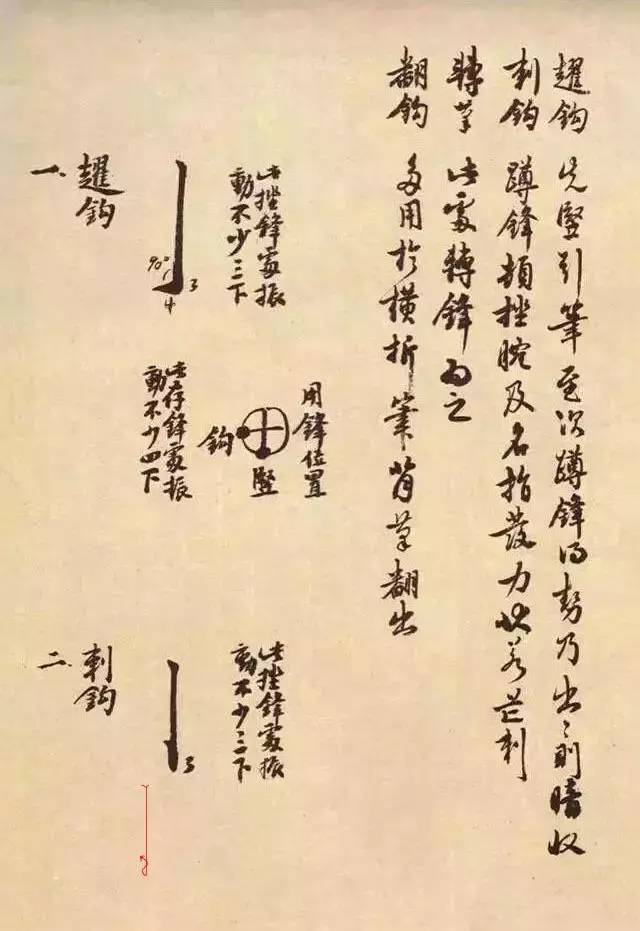 趯鈎 先竪引筆至次蹲鋒得勢乃出出則暗收
刺鈎 蹲鋒頓挫腕及名指發力狀若芒刺
轉筆 此處轉鋒為之
翻鈎 多用於橫折筆背筆翻出
一、趯鈎
此挫鋒處振
動不少三下
3
90°
4
用鋒位置
鈎
竪
此存鋒處振
動不少四下
二、刺鈎
此挫鋒處振
動不少三下
3